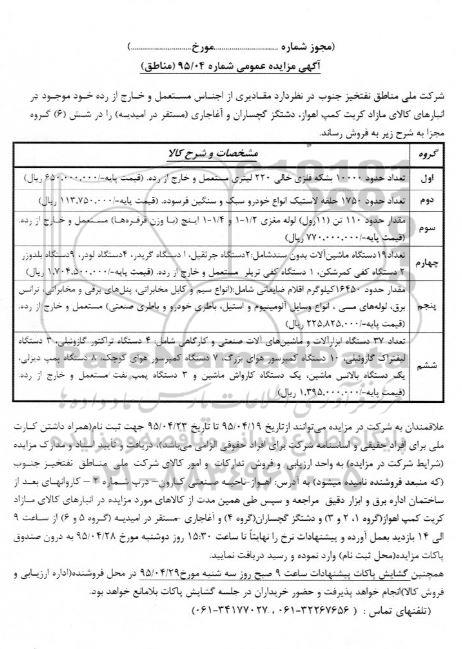 (مجوز شماره ......................... مورخ .........................)
آگهی مزایده عمومی شماره ۹۵/۰۴ (مناطق)
شرکت ملی مناطق نفتخیز جنوب در نظردارد مقادیری از اجناس مستعمل و خارج از رده خود موجود در
انبارهای کالای مازاد کریت کمپ اهواز، دشتگز گچساران و آغاجاری (مستقر در امیدیه) را در شش (۶) گروه
مجزا به شرح زیر به فروش رساند.
گروه مشخصات و شرح کالا
اول تعداد حدود ۱۰۰۰۰ بشکه فلزی خالی ۲۲۰ لیتری مستعمل و خارج از رده. (قیمت پایه/-۶۵۰.۰۰۰.۰۰۰ ریال)
دوم تعداد حدود ۱۷۵۰ حلقه لاستیک انواع خودرو سبک و سنگین فرسوده. (قیمت پایه/-۱۱۳.۷۵۰.۰۰۰ ریال)
سوم مقدار حدود ۱۱۰ تن (۱۱رول) لوله مغزی ۱/۲-۱ و ۱/۴-۱ اینچ (با وزن قرقره‌ها) مستعمل و خارج از رده.
(قیمت پایه/-۷۷۰.۰۰۰.۰۰۰ ریال)
چهارم تعداد۱۹دستگاه ماشین‌آلات بدون سندشامل:۲دستگاه جرثقیل، ۱ دستگاه گریدر، ۴دستگاه لودر، ۹دستگاه بلدوزر
۲ دستگاه کفی کمرشکن، ۱ دستگاه کفی تریلر مستعمل و خارج از رده. (قیمت پایه/-۱.۷۰۴.۵۰۰.۰۰۰ ریال)
پنجم مقدار حدود ۱۶۴۵۰کیلوگرم اقلام ضایعاتی شامل:(انواع سیم و کابل مخابراتی، پنل‌های برقی و مخابراتی، ترانس
برق، لوله‌های مسی ، انواع وسایل آلومینیوم و استیل، باطری خودرو و باطری صنعتی) مستعمل و خارج از رده.
(قیمت پایه/-۲۲۵.۸۲۵.۰۰۰ ریال)
ششم تعداد ۳۷ دستگاه ابزارآلات و ماشین‌های آلات صنعتی و کارگاهی شامل: ۴ دستگاه تراکتور گازوئیلی، ۳ دستگاه
لیفتراک گازوئیلی، ۱۰ دستگاه کمپرسور هوای بزرگ، ۷ دستگاه کمپرسور هوای کوچک، ۸ دستگاه پمپ دیزلی،
یک دستگاه بالانس ماشین، یک دستگاه کارواش ماشین و ۳ دستگاه پمپ نفت مستعمل و خارج از رده.
(قیمت پایه/-۱.۳۹۵.۰۰۰.۰۰۰ ریال)
علاقمندان به شرکت در مزایده می‌توانند ازتاریخ ۹۵/۰۴/۱۹ تا تاریخ ۹۵/۰۴/۲۳ جهت ثبت نام(همراه داشتن کارت
ملی برای افراد حقیقی و اساسنامه شرکت برای افراد حقوقی الزامی می‌باشد)، دریافت و تایید اسناد و مدارک مزایده
(شرایط شرکت در مزایده) به واحد ارزیابی و فروش تدارکات و امور کالای شرکت ملی مناطق نفتخیز جنوب
(که منبعد فروشنده نامیده میشود) به آدرس: اهواز ناحیه صنعتی کارون– درب شماره ۲ – کارونهای بعد از
ساختمان اداره برق و ابزار دقیق مراجعه و سپس طی همین مدت از کالاهای مورد مزایده در انبارهای کالای مازاد
کریت کمپ اهواز(گروه ۱، ۲ و ۳) و دشتگز گچساران(گروه ۴) و آغاجاری -مستقر در امیدیه (گروه ۵ و ۶) از ساعت ۹
الی ۱۴ بازدید بعمل آورده و پیشنهادات نرخ را نهایتاً تا ساعت ۱۵:۳۰ روز دوشنبه مورخ ۹۵/۰۴/۲۸ به درون صندوق
پاکات مزایده(محل ثبت نام) وارد نموده و رسید دریافت نمایند.
همچنین گشایش پاکات پیشنهادات ساعت ۹ صبح روز سه شنبه مورخ۹۵/۰۴/۲۹ در محل فروشنده(اداره ارزیابی و
فروش کالا)انجام خواهد پذیرفت و حضور خریداران در جلسه گشایش پاکات بلامانع خواهد بود.
(تلفنهای تماس : ۳۲۲۶۷۶۵۶-۰۶۱ ، ۳۴۱۷۷۰۲۷-۰۶۱)